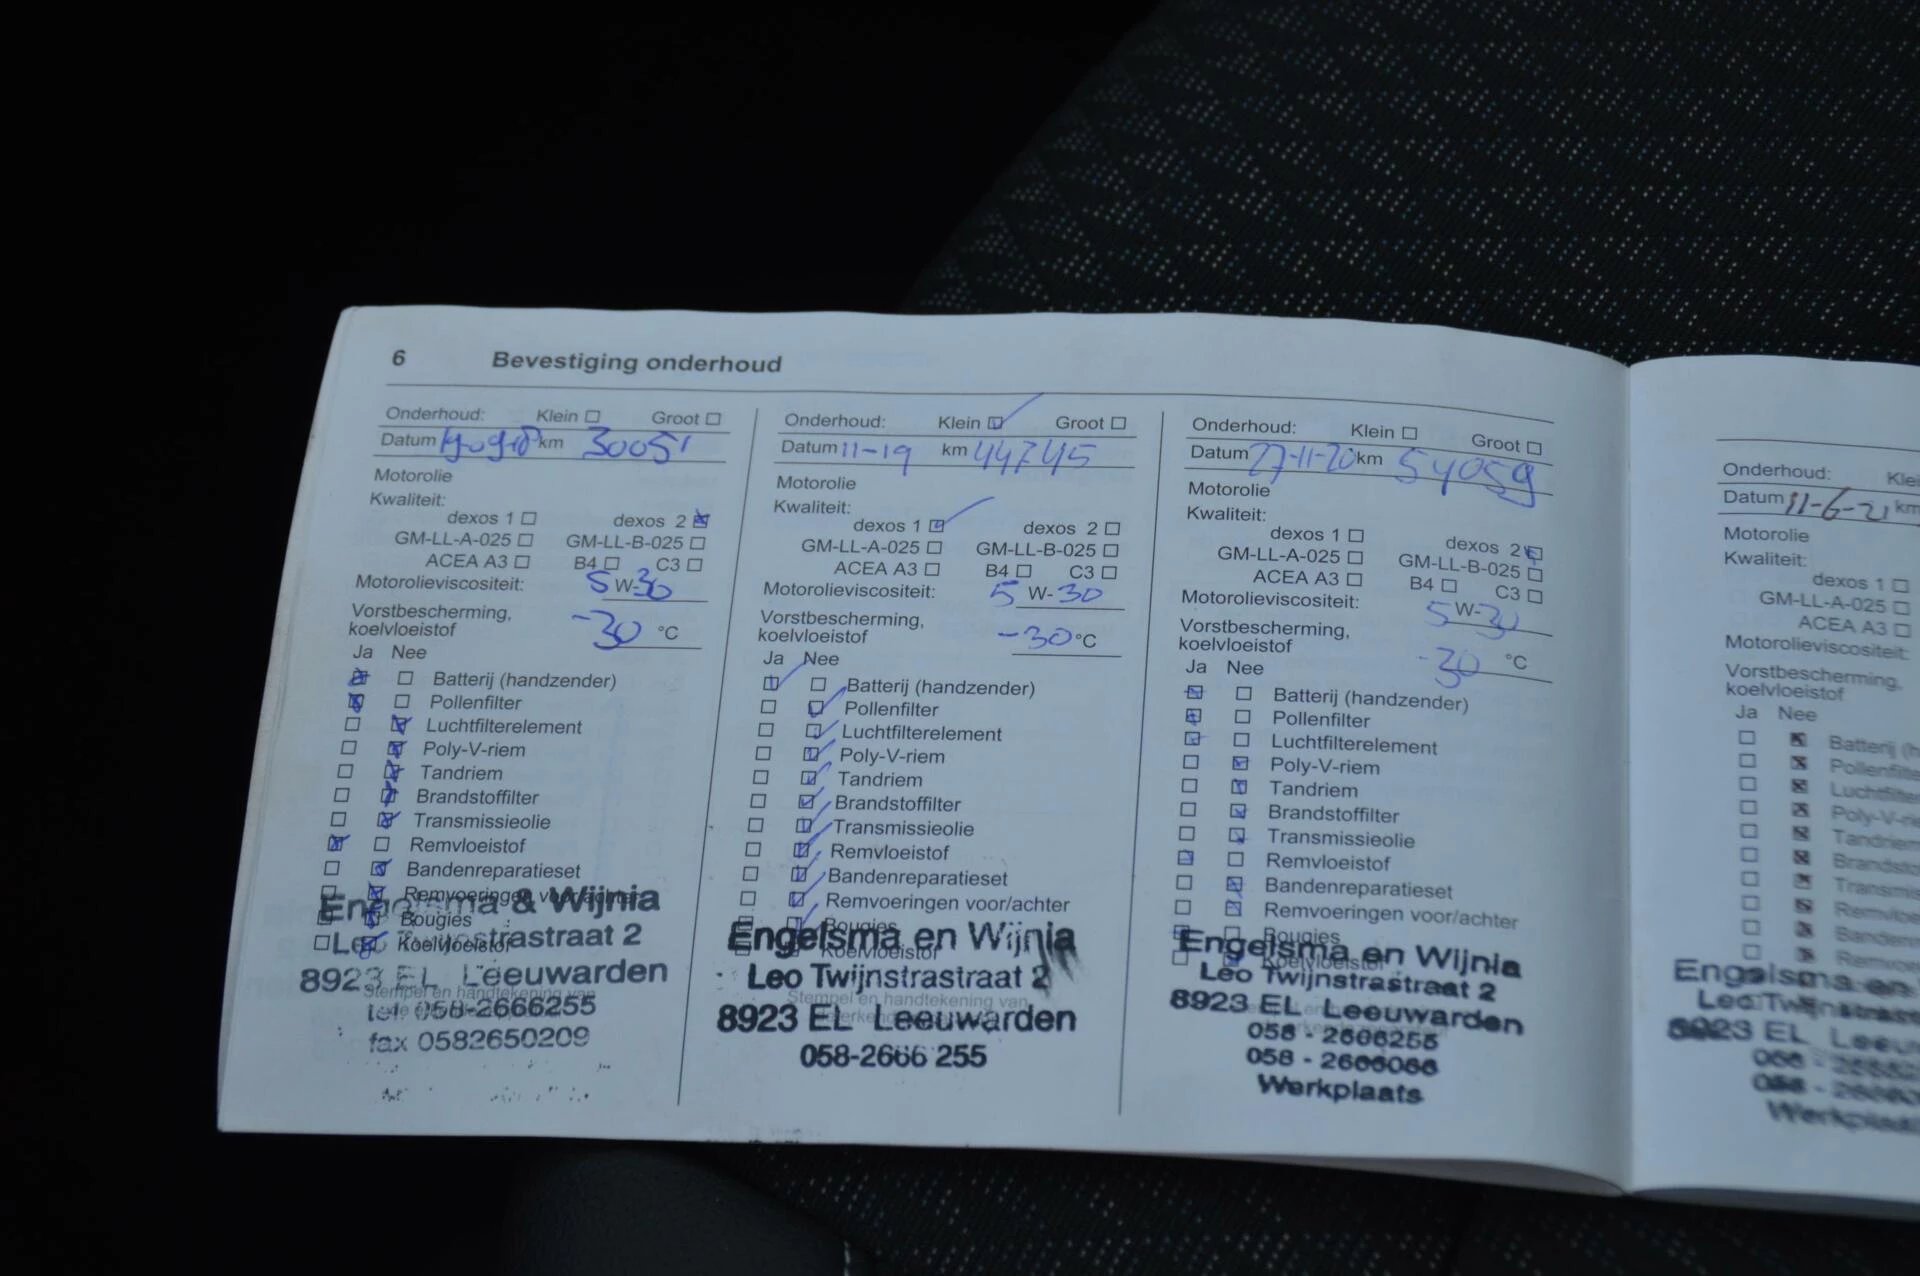 6 Bevestiging onderhoud
Onderhoud: Klein Groot
Datum km 30051
Motorolie
Kwaliteit:
dexos 1 dexos 2
GM-LL-A-025 GM-LL-B-025
ACEA A3 B4 C3
Motorolieviscositeit: 5 W-30
Vorstbescherming,
koelvloeistof -30 °C
Ja Nee
Batterij (handzender)
Pollenfilter
Luchtfilterelement
Poly-V-riem
Tandriem
Brandstoffilter
Transmissieolie
Remvloeistof
Bandenreparatieset
Remvoeringen voor/achter
Bougies
Koelvloeistof
Stempel en handtekening van
Engelsma & Wijnia
Leo Twijnstrastraat 2
8923 EL Leeuwarden
tel. 058-2666255
fax 0582650209
Onderhoud: Klein Groot
Datum 11-19 km 44745
Motorolie
Kwaliteit:
dexos 1 dexos 2
GM-LL-A-025 GM-LL-B-025
ACEA A3 B4 C3
Motorolieviscositeit: 5 W-30
Vorstbescherming,
koelvloeistof -30 °C
Ja Nee
Batterij (handzender)
Pollenfilter
Luchtfilterelement
Poly-V-riem
Tandriem
Brandstoffilter
Transmissieolie
Remvloeistof
Bandenreparatieset
Remvoeringen voor/achter
Bougies
Koelvloeistof
Stempel en handtekening van
Engelsma en Wijnia
Leo Twijnstrastraat 2
8923 EL Leeuwarden
058-2666 255
Onderhoud: Klein Groot
Datum 27-11-20 km 54059
Motorolie
Kwaliteit:
dexos 1 dexos 2
GM-LL-A-025 GM-LL-B-025
ACEA A3 B4 C3
Motorolieviscositeit: 5 W-30
Vorstbescherming,
koelvloeistof -30 °C
Ja Nee
Batterij (handzender)
Pollenfilter
Luchtfilterelement
Poly-V-riem
Tandriem
Brandstoffilter
Transmissieolie
Remvloeistof
Bandenreparatieset
Remvoeringen voor/achter
Bougies
Koelvloeistof
Engelsma en Wijnia
Leo Twijnstrastraat 2
8923 EL Leeuwarden
058 - 2666255
058 - 2666066
Werkplaats
Onderhoud: Klei
Datum 11-6-21 km
Motorolie
Kwaliteit:
dexos 1
GM-LL-A-025
ACEA A3
Motorolieviscositeit:
Vorstbescherming,
koelvloeistof
Ja Nee
Batterij (h
Pollenfilte
Luchtfilter
Poly-V-rie
Tandriem
Brandsto
Transmis
Remvloei
Bandenr
Remvoe
Engelsma en
Leo Twijnstras
8923 EL Leeu
Werkplaat